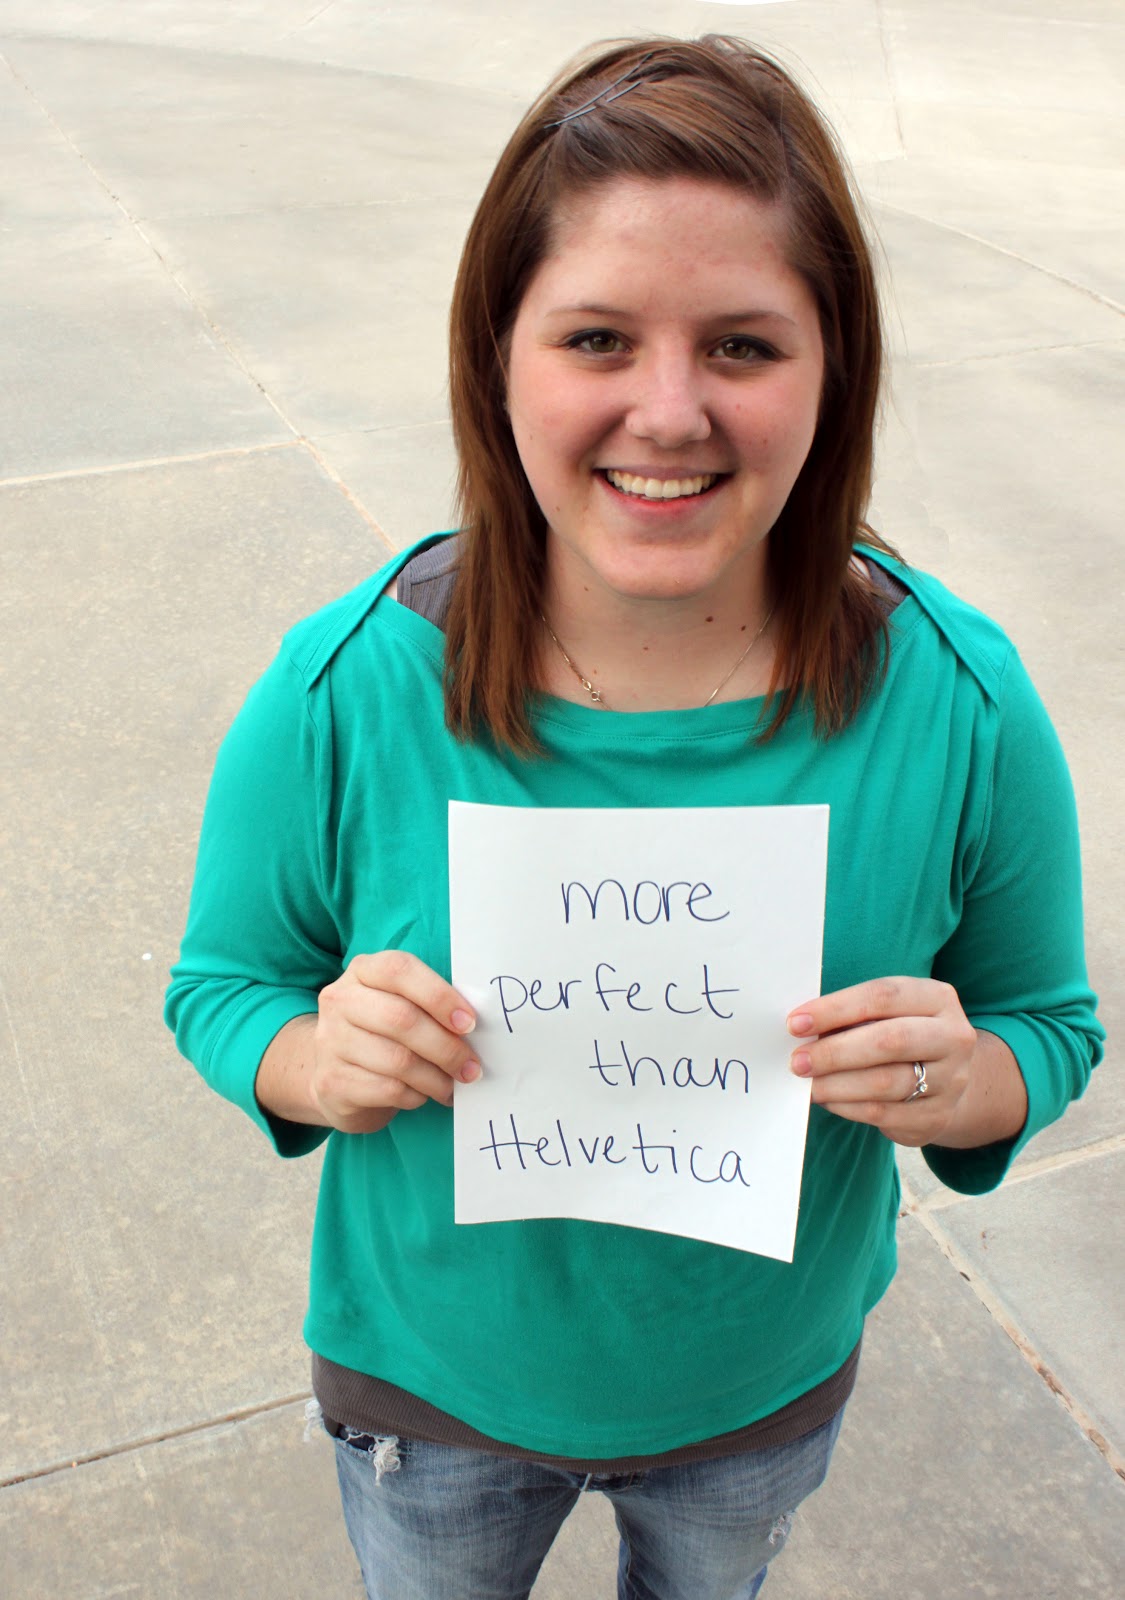 more
perfect
than
Helvetica